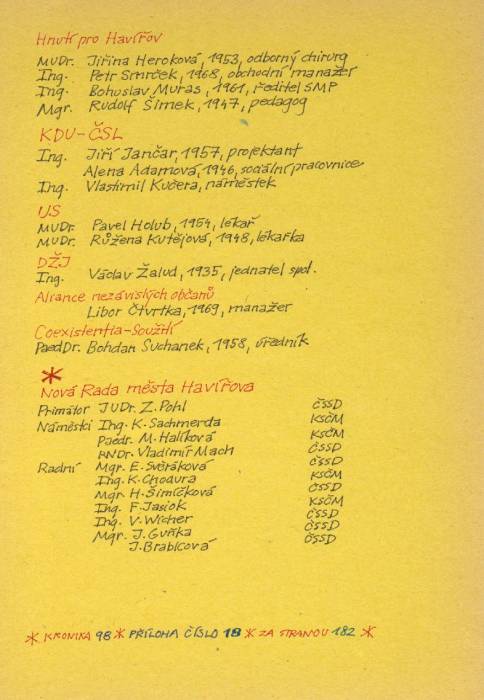 Hnutí pro Havířov
MUDr. Jiřina Heroková, 1953, odborný chirurg
Ing. Petr Smrček, 1968, obchodní manažer
Ing. Bohuslav Muras, 1961, ředitel SMP
Mgr. Rudolf Šimek, 1947, pedagog
KDU-ČSL
Ing. Jiří Jančar, 1957, projektant
Alena Adamová, 1946, sociální pracovnice
Ing. Vlastimil Kučera, náměstek
US
MUDr. Pavel Holub, 1954, lékař
MUDr. Růžena Kutějová, 1948, lékařka
DŽJ
Ing. Václav Žalud, 1935, jednatel spol.
Aliance nezávislých občanů
Libor Čtvrtka, 1969, manažer
Coexistentia-Soužití
PaedDr. Bohdan Suchanek, 1958, úředník
*
Nová Rada města Havířova
Primátor JUDr. Z. Pohl ČSSD
Náměstci Ing. K. Sachmerda KSČM
Paedr. M. Halíková KSČM
RNDr. Vladimír Mach ČSSD
Radní Mgr. E. Svěráková ČSSD
Ing. K. Chodura KSČM
Mgr. H. Šimíčková ČSSD
Ing. F. Jasiok KSČM
Ing. V. Wicher ČSSD
Mgr. J. Guňka ČSSD
J. Brablcová ČSSD
* KRONIKA 98 * PŘÍLOHA ČÍSLO 18 * ZA STRANOU 182 *